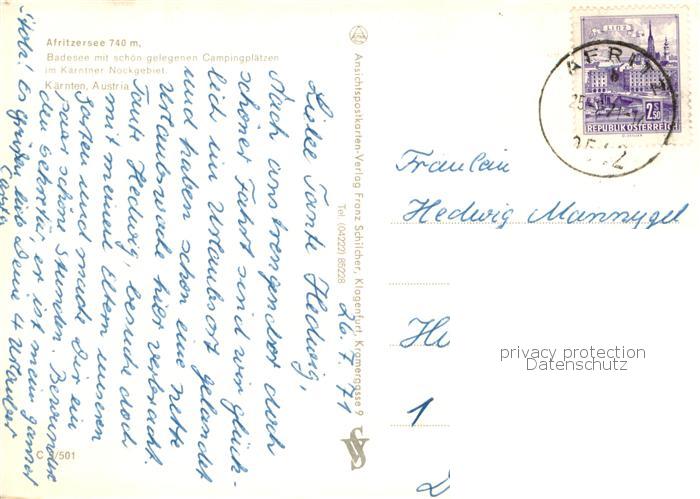 Afritzersee 740 m,
Badesee mit schön gelegenen Campingplätzen
im Kärntner Nockgebiet.
Kärnten, Austria
26. 7. 71
Liebe Tante Hedwig,
Nach anstrengender doch
schöner Fahrt sind wir glück-
lich im Urlaubsort gelandet
und haben schon eine nette
Urlaubswoche hier verbracht.
Tante Hedwig, besuche doch
mit meinen Eltern unseren
Garten und mache Dir ein
paar schöne Stunden. Bewundere
den er ist mein ganzer
Stolz. Es grüßen Deine 4 Urlauber
C /501
Ansichtspostkarten-Verlag Franz Schilcher, Klagenfurt, Kramergasse 9
Tel. (04222) 85228
LINZ
2.50
REPUBLIK ÖSTERREICH
AFRITZ
Fräulein
Hedwig Mannygel
1
privacy protection
Datenschutz